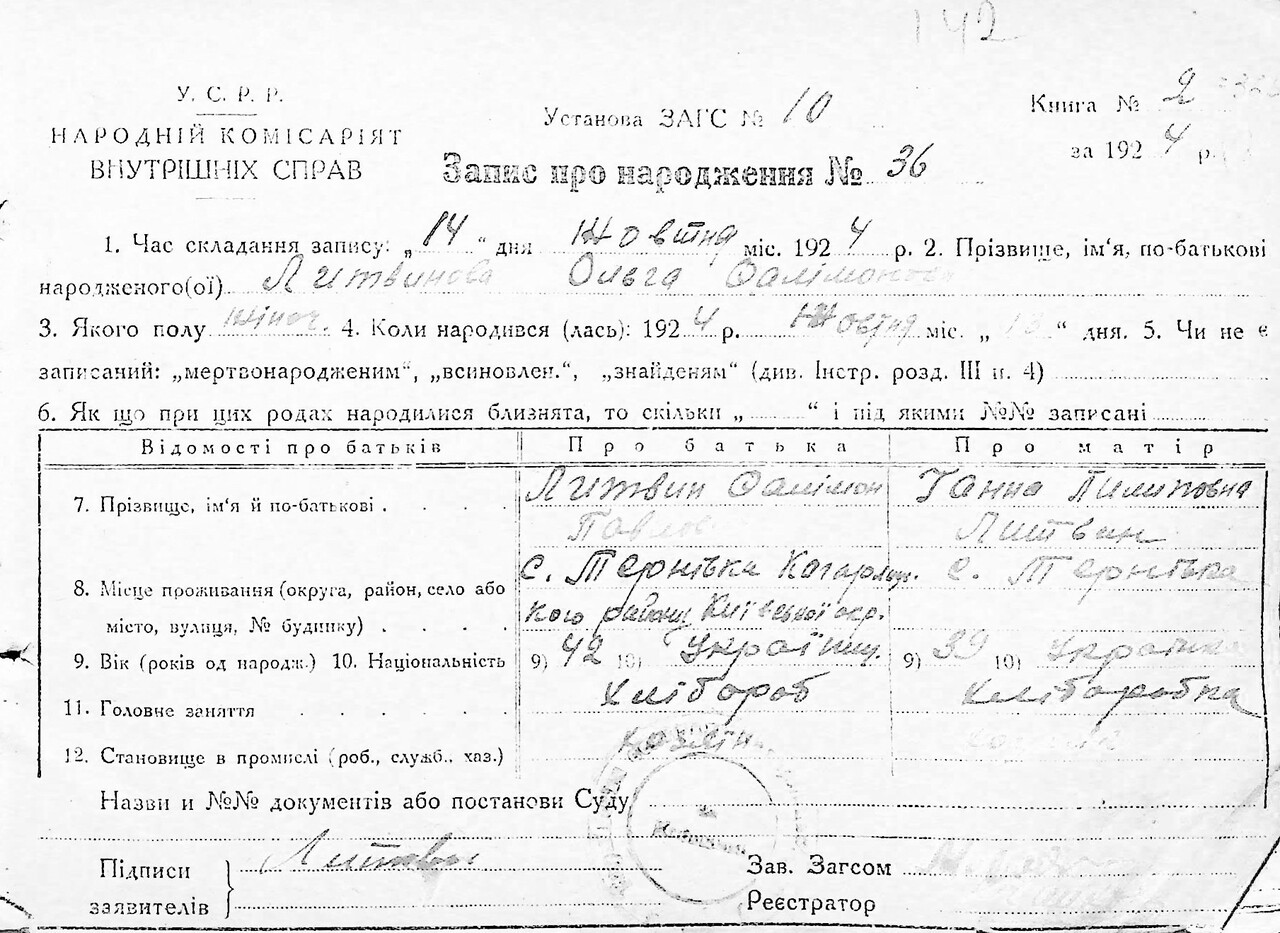 142
У. С. Р. Р.
НАРОДНІЙ КОМІСАРІЯТ
ВНУТРІШНІХ СПРАВ
Установа ЗАГС № 10
Книга № 2
за 1924 р.
Запис про народження № 36
1. Час складання запису: „14“ дня Жовтня міс. 1924 р. 2. Прізвище, ім'я, по-батькові
народженого(ої) Литвинова Ольга
3. Якого полу жіноч. 4. Коли народився (лась): 1924 р. Жовтня міс. „13“ дня. 5. Чи не є
записаний: „мертвонародженим“, „всиновлен.“, „знайденям“ (див. Інстр. розд. III п. 4)
6. Як що при цих родах народилися близнята, то скільки „ “ і під якими №№ записані
Відомості про батьків Про батька Про матір
7. Прізвище, ім'я й по-батькові . . . . Литвин Салімон Ганна Пилиповна
Литвин
8. Місце проживання (округа, район, село або с. Тернівка Кагарлиц. с. Тернівка
місто, вулиця, № будинку) . . . . кого району Київської окр.
9. Вік (років од народж.) 10. Національність 9) 42 10) Українц. 9) 39 10) Українка
11. Головне заняття . . . . . Хлібороб Хліборобка
12. Становище в промислі (роб., служб., хаз.) хазяїн
Назви и №№ документів або постанови Суду
Підписи
заявителів
Литвин
Зав. Загсом
Реєстратор